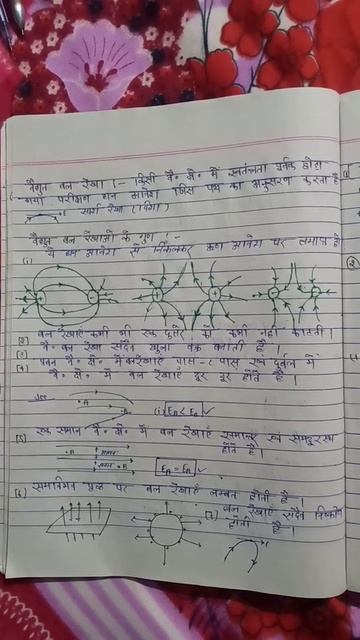 वैद्युत बल रेखा :- किसी वै० क्षे० में स्वतंत्रता पूर्वक छोड़ा
गया परीक्षण धन आवेश जिस पथ का अनुसरण करता है
मार्ग रेखा (दिशा)
वैद्युत बल रेखाओं के गुण :-
(i) ये धन आवेश से निकलकर ऋण आवेश पर समाप्त हो
(2) बल रेखाएं कभी भी एक दूसरे को कभी नहीं काटती।
(3) वै० बल रेखा सदैव खुला वक्र बनाती है
(4) प्रबल वै० क्षे० में बलरेखाएं पास-2 पास एवं दुर्बल में
वै० क्षे० में बल रेखाएं दूर दूर होते है।
•A
(i) EA < EB ✓
(5) एक समान वै० क्षे० में बल रेखाएं समान्तर एवं समदूरस्थ
होते है।
•A
•B
EA = EB ✓
(6) समविभव पृष्ठ पर बल रेखाएं लम्बवत होती है।
(7) बल रेखाएं सदैव
होती है।